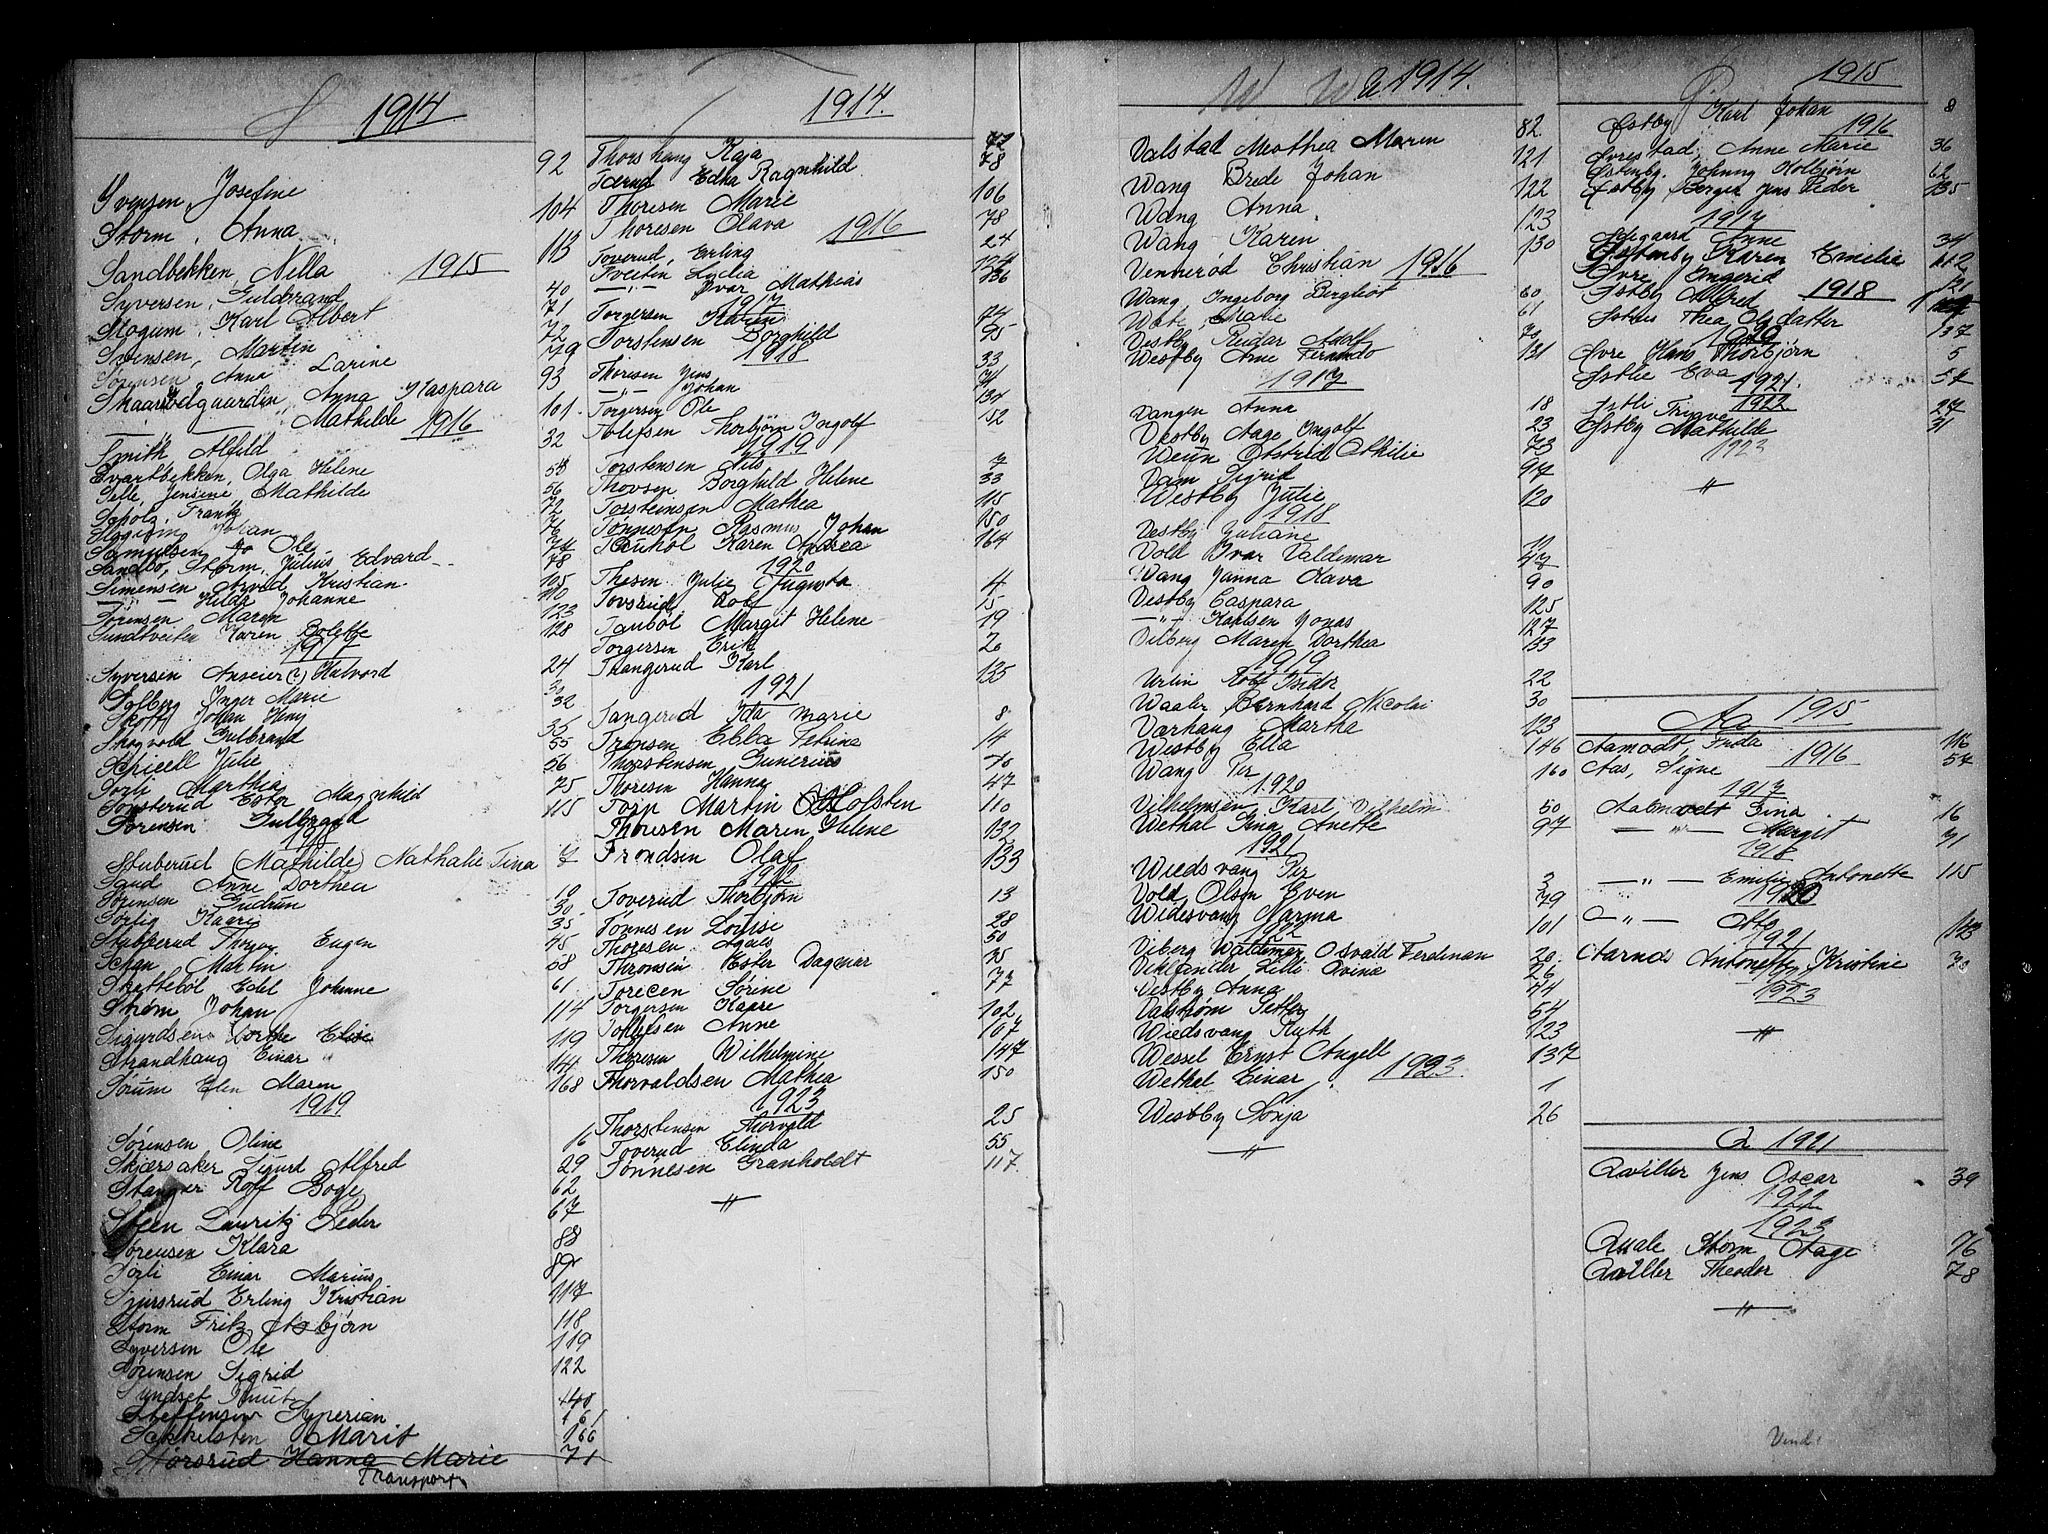 S 1914
Svensen, Josefine 92
Storm, Anna 104
Sandbekken, Nella 113
1915
Syversen, Guldbrand 40
Skogum, Karl Albert 71
Svensen, Martin 72
Sørensen, Anna Larine 79
Anna Kaspara 93
Mathilde 101
1916
Smith Alfild 32
Svartbekken, Olga Helene
Selle, Jensine Mathilde 56
Scholz, Frantz 72
Johan 76
Samuelsen Ole 74
Sandbo, Storm, Julius Edvard 78
Simensen Arvid Kristian 105
— " — Hilda Johanne 110
Sørensen Maren 123
Sundtveiten Karen Bolette 128
1917
Syversen Anseier(?) Halvord 24
Solberg Inger Marie
Skott Johan Heny 32
Skogvold Gulbrand 35
Scpicell Julie 55
Sorli Marthea 56
Torsterud Ester Magnhild 75
Sørensen Gulbrand 115
1918
Stuberud (Mathilde) Nathalie Tina
Sand Anne Dorthea
Sørensen Gudrun 30
Sørlig Kaare 35
Stubberud Thorger Eugen 45
Schau Martin 58
Skettebøl Edel Johanne 61
Strøm Johan 114
Sigurdsen Dorthe Elise 119
Strandhaug Einar 144
Sørum Elen Maren 168
1919
Sørensen Oline 16
Skjørsaker Sigurd Alfred 29
Stanger Rolf Boge 62
Steen Lauritz Peder 67
Sørensen Klara 88
Sørli Einar Marius 89
Sjursrud Erling Kristian 117
Storm Fritz Asbjørn 118
Syversen Ole 119
Sørensen Sigrid 122
Sundset Knut
Steffensen Syverian 161
Sekkelsten Marit 166
Størsrud Hanna Marie 71
Transport
1914
Thorshaug Kaja 72
Tærud Edna Ragnhild 78
Thoresen Marie 106
Thoresen Olava 78
1916
Toverud, Erling 24
Tveiten Lydia
— " — Ivar Mathias
1917
Torgersen Karin 74
Torstensen Borghild 95
1918
Thoresen Jens 33
— " — Johan
Torgersen Ole 134
Tolefsen Thorbjørn Ingolf 152
1919
Torstensen Nils 7
Thovsen Borghild Helene 33
Torsteinsen Mathea 115
Tønnesen Rasmus Johan 150
Tauhol Karen Andrea 164
1920
Thesen Julie Augusta 4
Tovsrud Rolf 15
Taubøl Margit Helene 19
Torgersen Erik 26
Thangerud Karl 135
1921
Tangerud Ida Marie 8
Tronsen Ebba Petrine 14
Thorstensen Gunerius 40
Thoresen Hanna 47
Torp Martin Holsten 110
Thoresen Maren Helene 132
Trondsen Olaf 133
1922
Toverud Thorbjørn 13
Tønnesen Louise 28
Thoresen Agnes 50
Thronsen Ester Dagmar
Torecen Sørine 77
Torgersen Kaare 102
Tollefsen Anne 107
Thoresen Wilhelmine 147
Thorvaldsen Mathea 150
1923
Thorstensen Thorvald 25
Toverud Elinda 55
Tønnesen Granholdt 117
— " —
W W & 1914.
Valstad Mathea Maren 82
Wang Brede Johan 121
Wang Anna 122
Wang Karen 123
Vennerød Christian 130
1916
Wang, Ingeborg Bergliot 60
Marie 61
Vestby Reidar Adolf 70
Westby Arne Fernando 131
1917
Vangen Anna 18
Vestby Aage Ingolf 23
Weun Astrid Othilie 73
Dam Sigrid 97
Westby Julie 120
1918
Vestby Juliane
Vold Ivar Valdemar
Wang Janna Kava 90
Vestby Caspara 125
— " — Karlsen Jonas 127
Vilberg Maren Dorthea 133
1919
Urlin Rolf Isidor 22
Waaler Bernhard Nicolai 30
Varhaug Martha 123
Westby Ella 146
Wang Per 160
1920
Vilhelmsen Karl Vilhelm 50
Wethal Gina Anette 97
1921
Wiedsvang Per 3
Vold, Olsen Even 79
Widesvang Narma 101
1922
Viberg Waldimar Osvald Ferdinan 20
Viklander Lilli Ovine 26
Vestby Anna 44
Valstrøm Petter 54
Wiedsvang Ruth 123
Wessel Ernst Angell 137
1923
Wethal Einar 1
Westby Sonja 26
— " —
Ø 1915
Østby Karl Johan 8
1916
Øvrestad, Anne Marie 36
Østenby. Johnny Kolbjørn 62
Østby Berger Jens Peder 135
1917
Ødegaard Anne 34
Østenby Karen Emilie 112
Øvre Ingerid 121
Østby Alfred
1918
Østlus Thea Olsdatter 137
Øvre Hans Thorbjørn 5
Østlie Eva 57
1921.
Østli Trygve 27
1922
Østby Mathilde 31
1923
"
Aa 1915
Aamodt, Frida 116
1916
Aas, Signe 57
1917
Aamodt Gina 16
— " — Margit 31
1918
— " — Emilie Antonette 115
1920
— " — Otto 143
1921
Aarnes Antonette Kristine
1923
— " —
Q 1921
Qviller Jens Oscar 39
1922
1923
Quale Storm Aage 76
Qviller Theodor 78
— " —
Vend